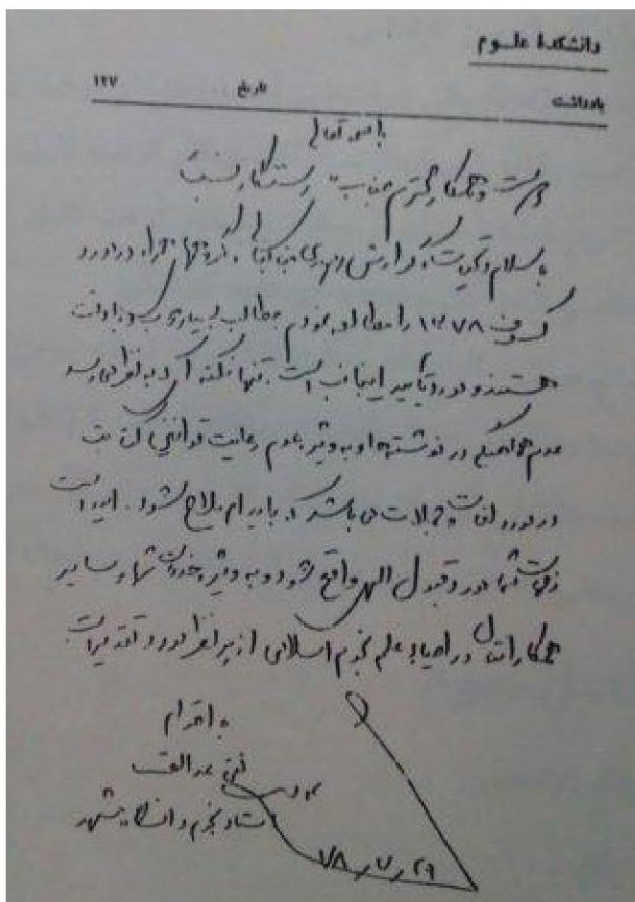 دانشکدهٔ علوم
یادداشت تاریخ ۱۳۷
باسمه تعالی
دوست و همکار محترم جناب
با سلام و تحیت گزارش
کسوف ۱۳۷۸ را مطالعه نمودم مطالب بسیار
هستند و مورد تأیید اینجانب است. تنها نکته ای که به نظر می رسد
عدم هماهنگی در نوشته ها و به ویژه عدم رعایت قوانین
در مورد لغات و جملات می باشد که باید اصلاح شود. امید است
زحمات شما مورد قبول الهی واقع شود و به ویژه خدمات شما و سایر
همکارانتان در احیاء علم نجوم اسلامی از هر نظر مورد تقدیر است.
با احترام
تقی عدالتی
استاد نجوم دانشگاه مشهد
۷۸/۷/۲۹